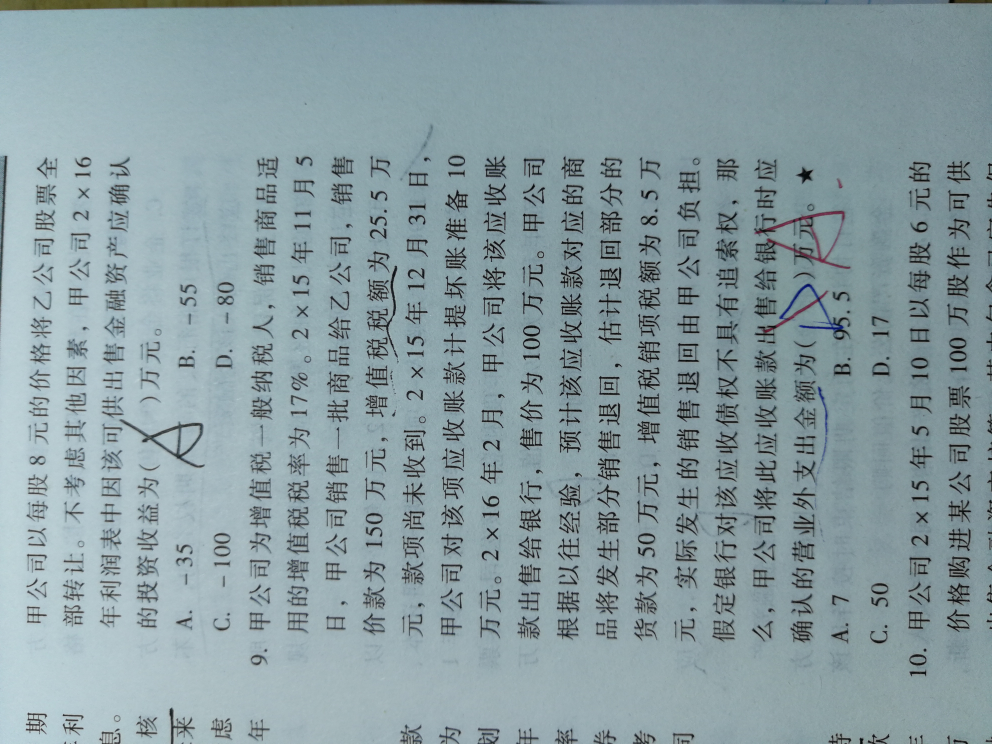 期
利
息。
核
来
虑
年
款
为
划
年
率
券
考
司
甲公司以每股 8 元的价格将乙公司股票全
部转让。不考虑其他因素,甲公司 2×16
年利润表中因该可供出售金融资产应确认
的投资收益为( A )万元。
A. -35 B. -55
C. -100 D. -80
9. 甲公司为增值税一般纳税人，销售商品适
用的增值税税率为 17%。2×15 年 11 月 5
日，甲公司销售一批商品给乙公司，销售
价款为 150 万元,增值税税额为 25.5 万
元,款项尚未收到。2×15 年 12 月 31 日,
甲公司对该项应收账款计提坏账准备 10
万元。2×16 年 2 月，甲公司将该应收账
款出售给银行，售价为 100 万元。甲公司
根据以往经验，预计该应收账款对应的商
品将发生部分销售退回，估计退回部分的
货款为 50 万元，增值税销项税额为 8.5 万
元，实际发生的销售退回由甲公司负担。
假定银行对该应收债权不具有追索权，那
么,甲公司将此应收账款出售给银行时应
确认的营业外支出金额为( D )万元。★
A
A. 7 B. 95.5
C. 50 D. 17
10. 甲公司 2×15 年 5 月 10 日以每股 6 元的
价格购进某公司股票 100 万股作为可供